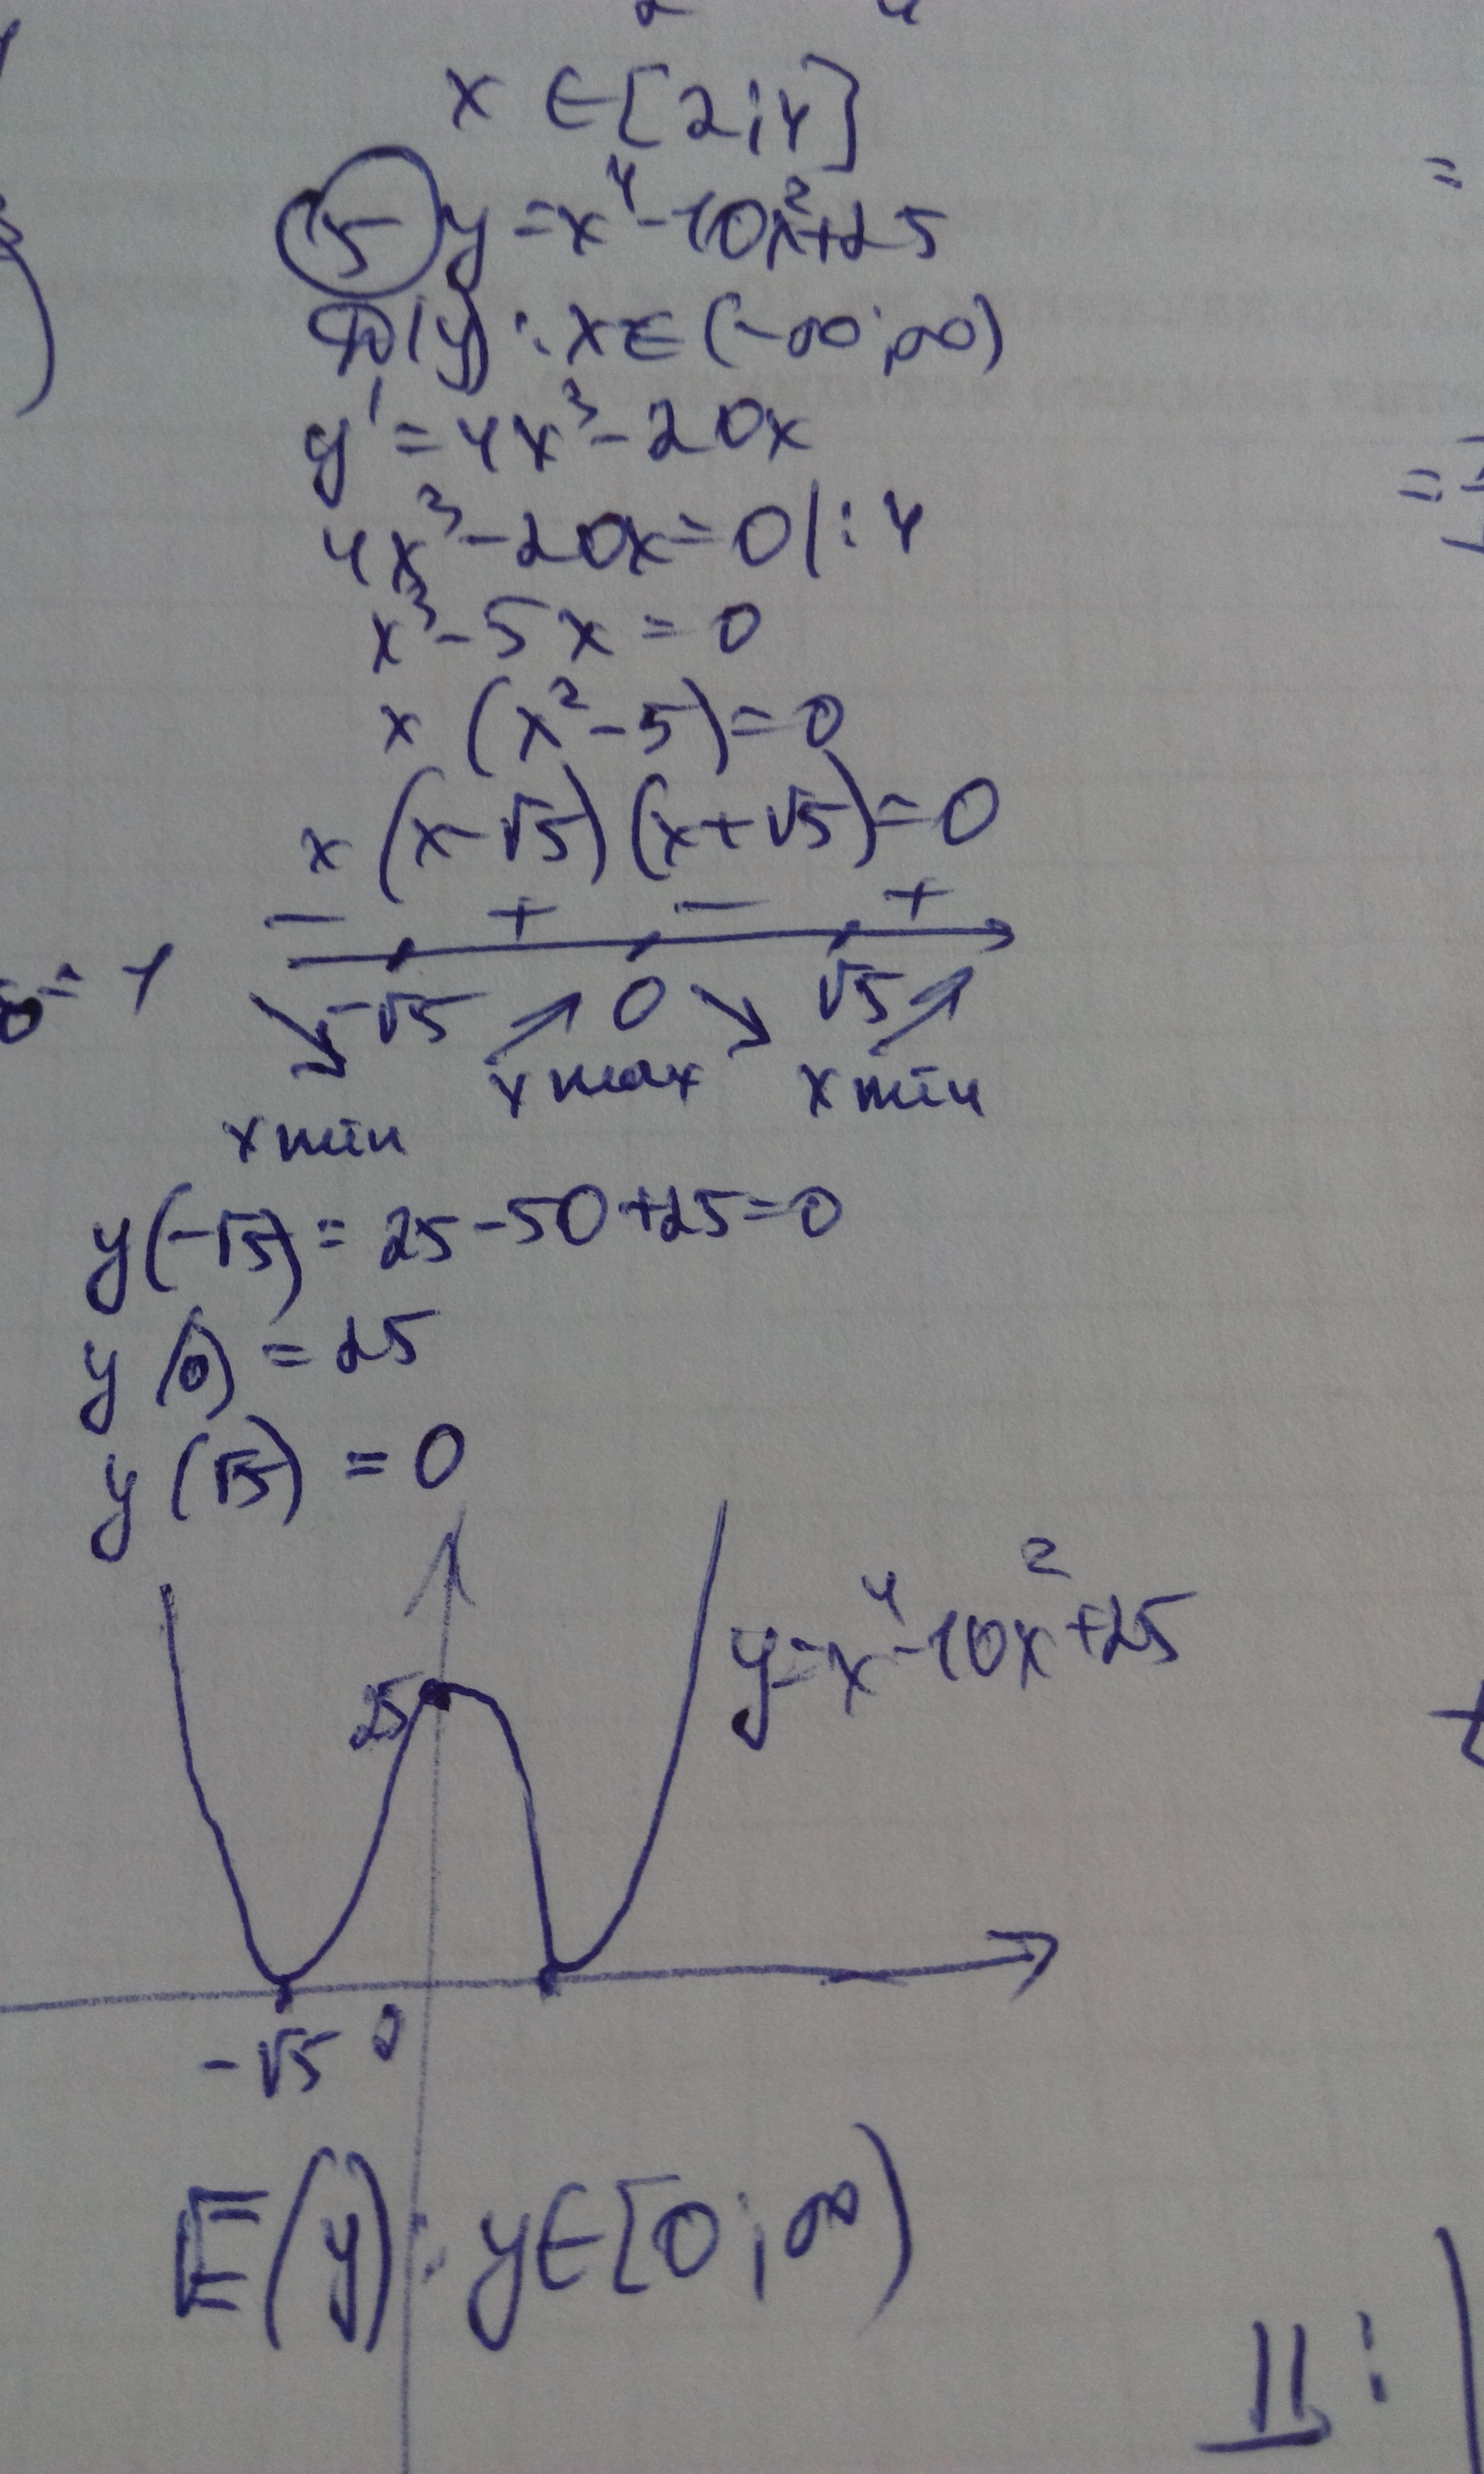 x ∈ [2;4]
5 y = x⁴ - 10x² + 25
D(y) : x ∈ (-∞; ∞)
y' = 4x³ - 20x
4x³ - 20x = 0 | : 4
x³ - 5x = 0
x (x² - 5) = 0
x (x - √5) (x + √5) = 0
- + - +
-√5 0 √5
x min x max x min
y(-√5) = 25 - 50 + 25 = 0
y(0) = 25
y(√5) = 0
y = x⁴ - 10x² + 25
25
-√5 0
E(y) : y ∈ [0; ∞)
II :